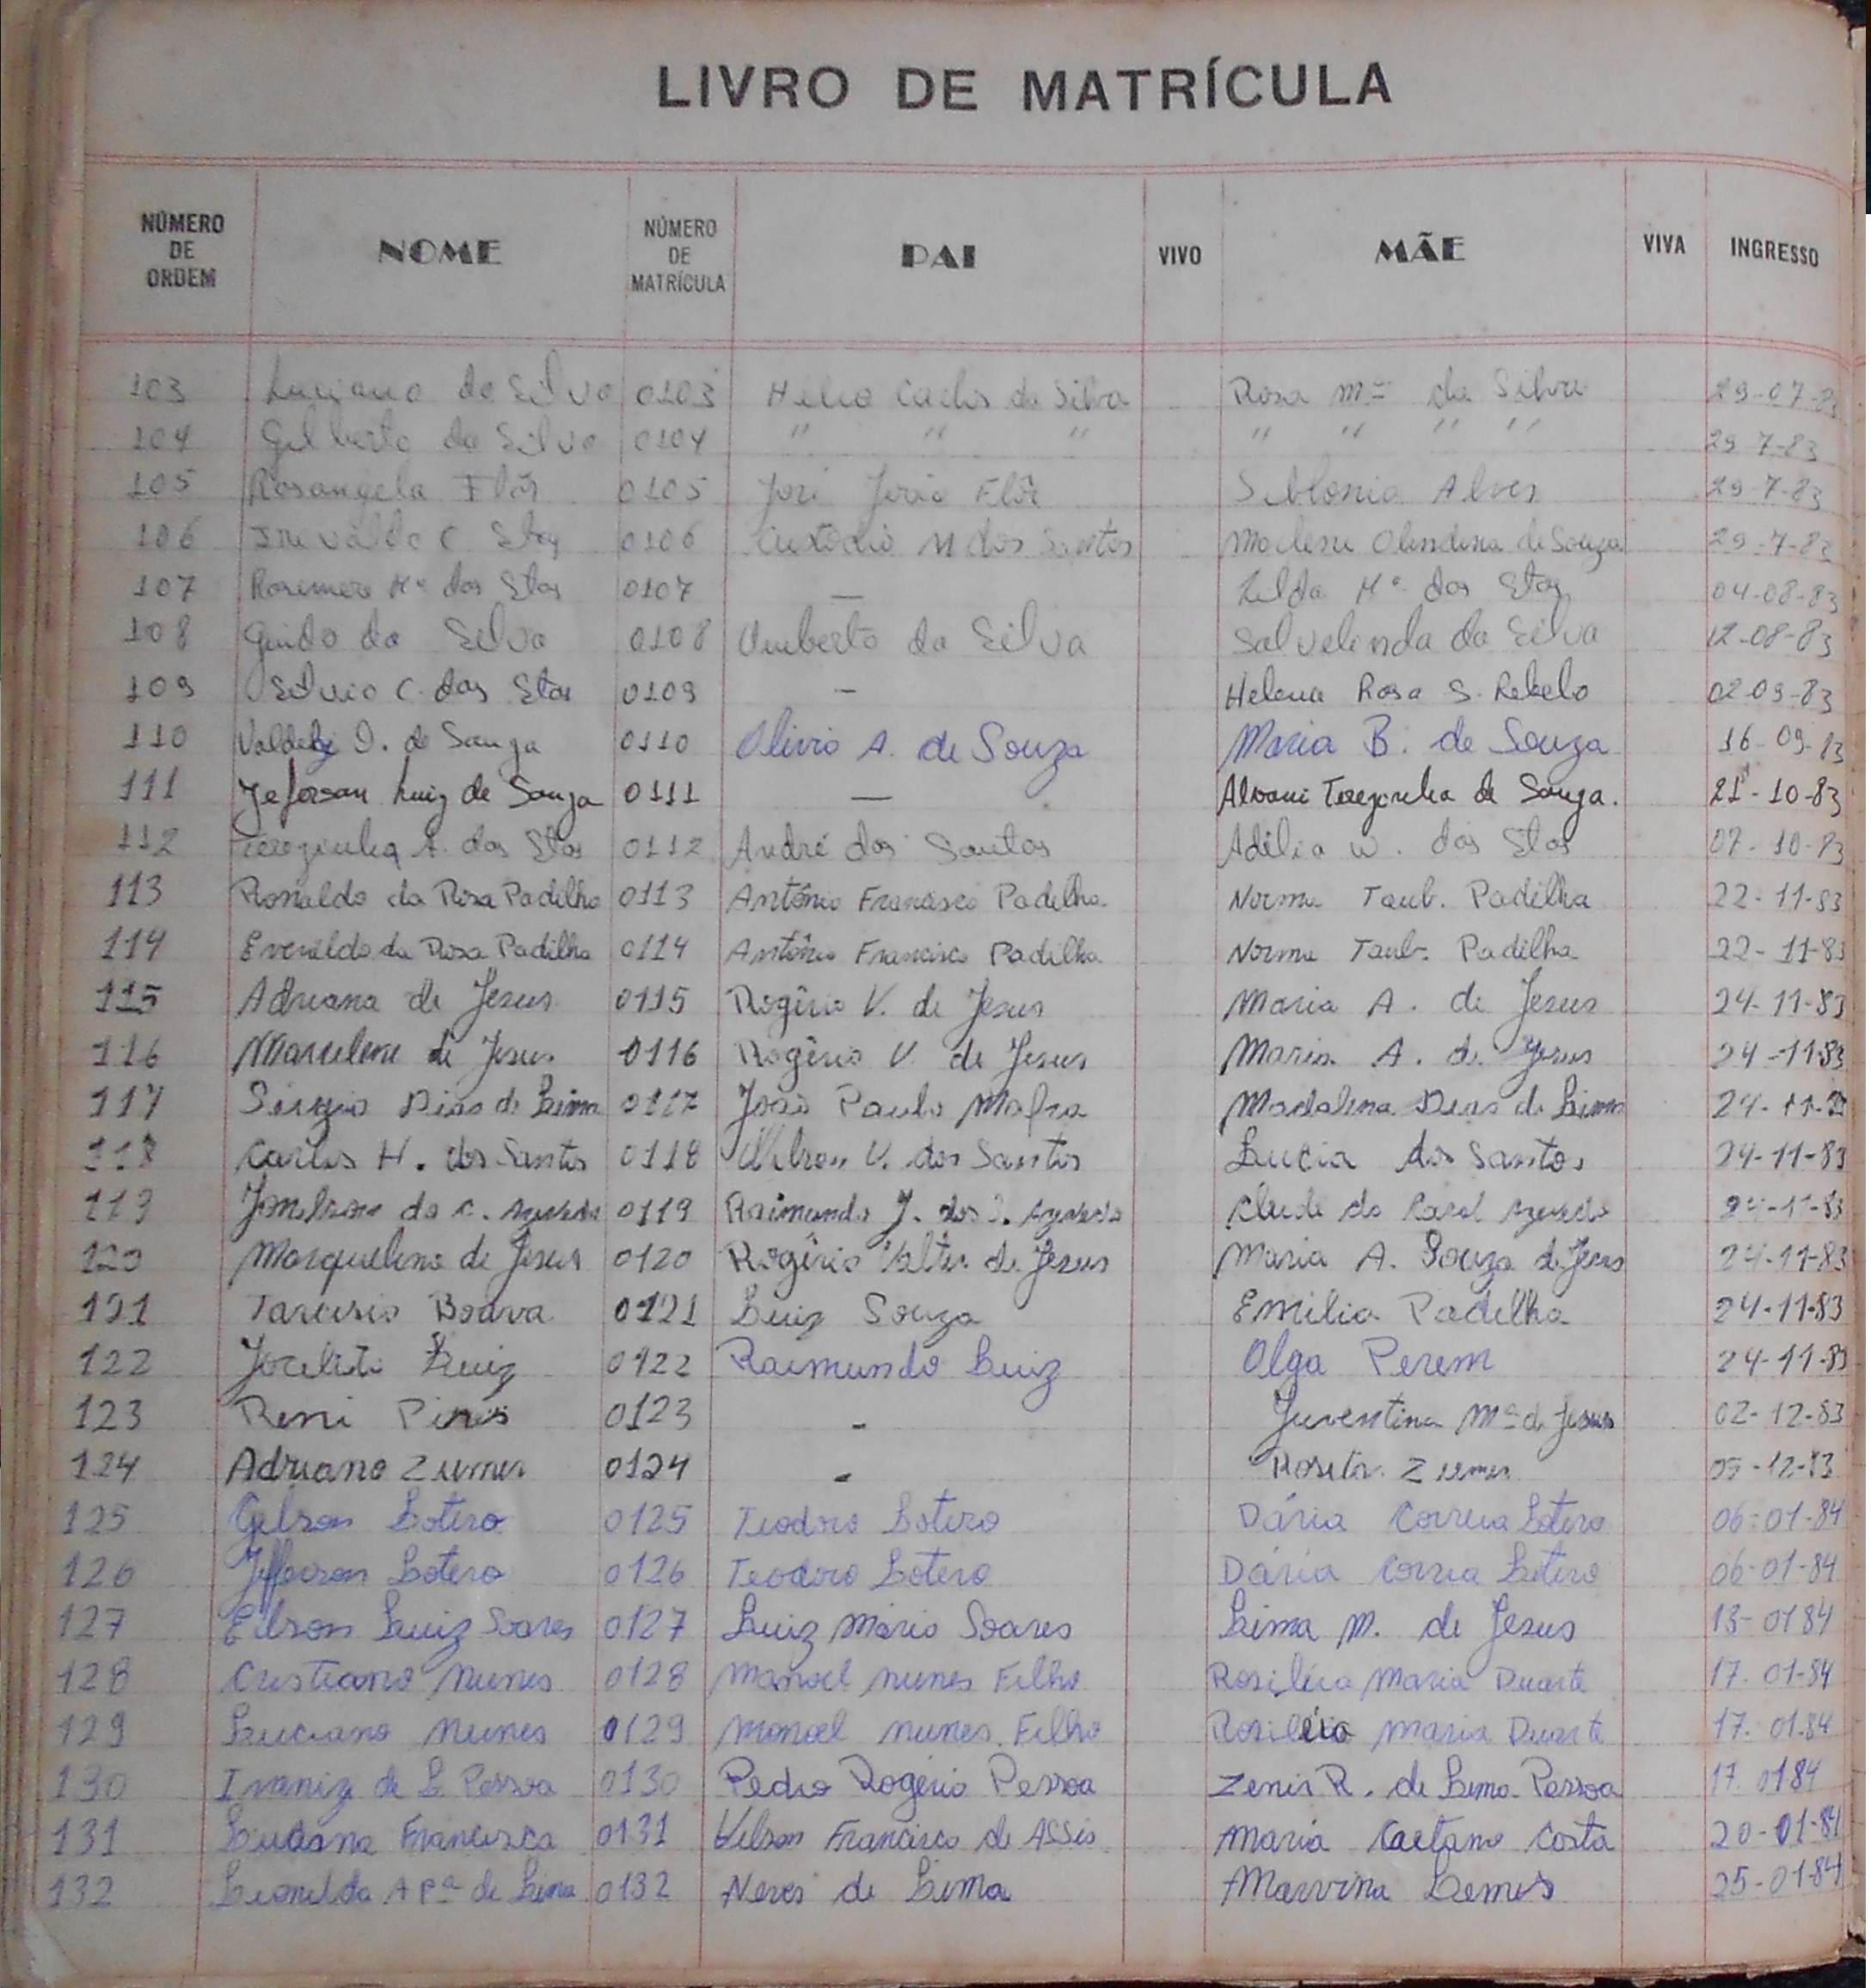 LIVRO DE MATRÍCULA
NÚMERO DE ORDEM NOME NÚMERO DE MATRÍCULA PAI VIVO MÃE VIVA INGRESSO
103 Luciano da Silva 0103 Helio Carlos da Silva Rosa Mª da Silva 29-07-83
104 Gilberto da Silva 0104 " " " " " " " 29-7-83
105 Rosangela Flôr 0105 José João Flôr Alves 29-7-83
106 C 0106 M dos Santos Olindina de Souza 29-7-83
107 Rosimere Mª dos Stos 0107 — Zilda Mª dos Stos 04-08-83
108 Guido da Silva 0108 Umberto da Silva Salvelinda da Silva 12-08-83
109 Silvio C. dos Stos 0109 - Helena Rosa S. Rebelo 02-09-83
110 I. de Souza 0110 Olivio A. de Souza Maria B. de Souza 16-09-83
111 Jeferson Luiz de Souza 0111 — Alvani Terezinha de Souza. 21-10-83
112 Terezinha A. dos Stos 0112 André dos Santos Adélia W. dos Stos 07-10-83
113 Ronaldo da Rosa Padilha 0113 Antônio Francisco Padilha Norma Taub. Padilha 22-11-83
114 Everaldo da Rosa Padilha 0114 Antônio Francisco Padilha Norma Taub. Padilha 22-11-83
115 Adriana de Jesus 0115 Rogêrio V. de Jesus Maria A. de Jesus 24-11-83
116 Marcilene de Jesus 0116 Rogêrio V. de Jesus Maria A. de Jesus 24-11-83
117 Sergio Dias de Lima 0117 João Paulo Mafra Madalena Dias de Lima 24-11-83
118 Carlos H. dos Santos 0118 Nilson V. dos Santos Lucia dos Santos 24-11-83
119 Jomilson do C. Azevedo 0119 Raimundo J. dos S. Azevedo Cleude do Azevedo 24-11-83
120 Marquelino de Jesus 0120 Rogêrio Valter de Jesus Maria A. Souza de Jesus 24-11-83
121 Tarcisio Boava 0121 Luiz Souza Emilia Padilha 24-11-83
122 Jocelito Luiz 0122 Raimundo Luiz Olga Perem 24-11-83
123 Reni Pires 0123 - Juventina Mª de Jesus 02-12-83
124 Adriano Ziemer 0124 - Rosita Ziemer 05-12-83
125 Gilson Lotero 0125 Teodoro Lotero Dária Correia Lotero 06-01-84
126 Jefferson Lotero 0126 Teodoro Lotero Dária Correia Lotero 06-01-84
127 Edson Luiz Soares 0127 Luiz Mário Soares Lima M. de Jesus 13-01 84
128 Cristiano Nunes 0128 Manoel Nunes Filho Rosiléia Maria Duarte 17-01-84
129 Luciano Nunes 0129 Manoel Nunes Filho Rosiléia Maria Duarte 17-01-84
130 Ivaniz de L. Pessoa 0130 Pedro Rogério Pessoa Zenir R. de Lima Pessoa 17-01 84
131 Luciana Francisca 0131 Vilson Francisco de Assis Maria Caetano Costa 20-01-84
132 Leonilda Apª de Lima 0132 Neres de Lima Marvina Lemes 25-01-84